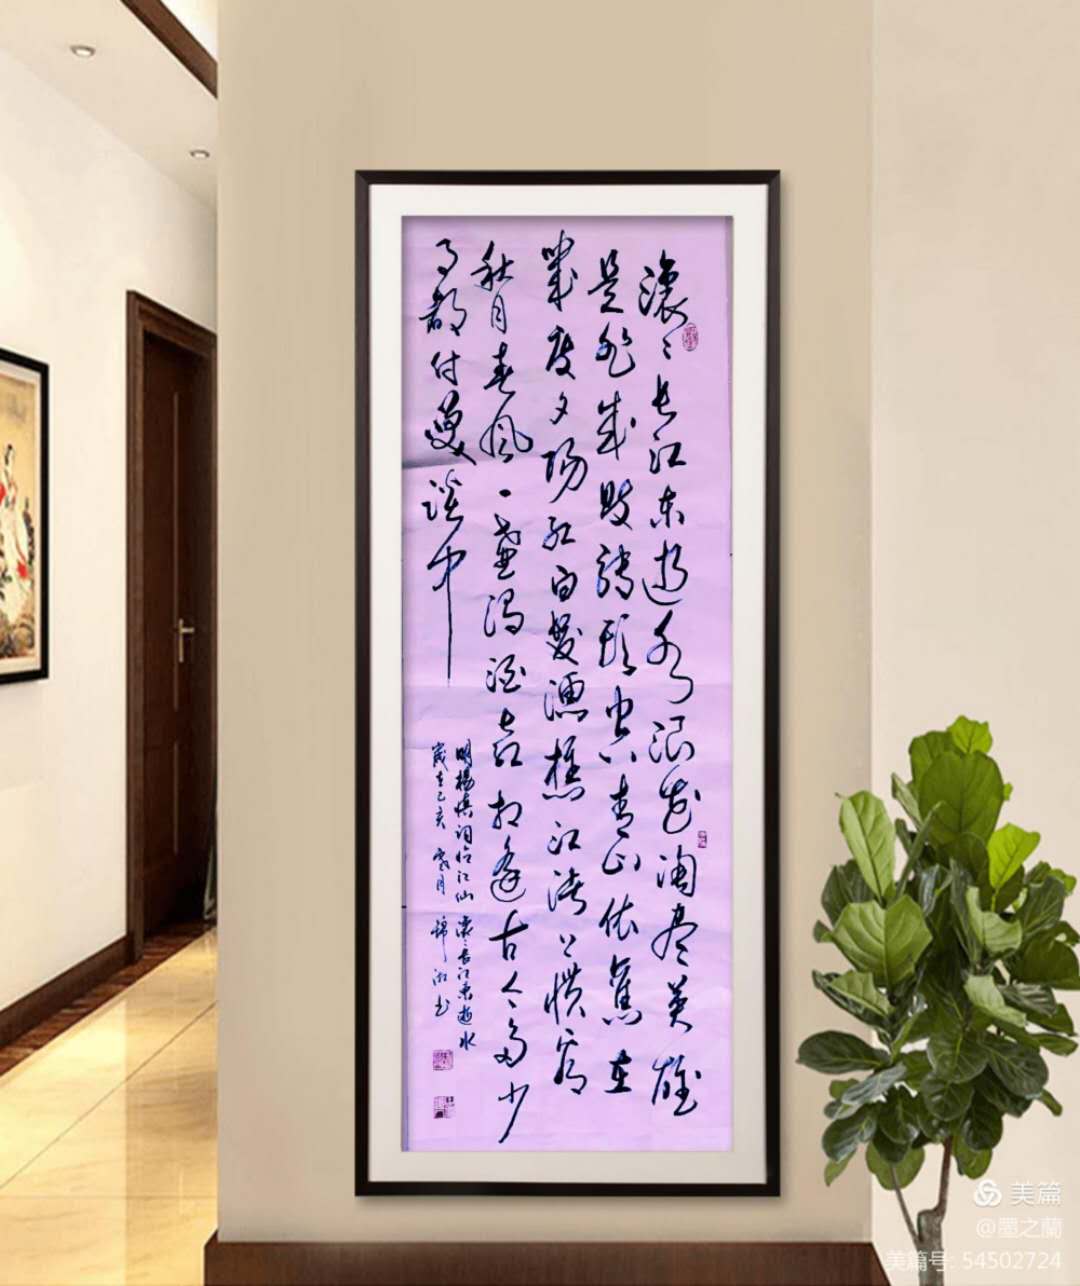 滚〻长江东逝水浪花淘尽英雄
是非成败转头空青山依舊在
幾度夕阳红白髮漁樵江渚上惯看
秋月春风一壶浊酒喜相逢古今多少
事都付笑谈中
明楊慎词临江仙 滚〻长江東逝水
歲在己亥 月 锦湘书
美篇
@墨之蘭
美篇号: 54502724